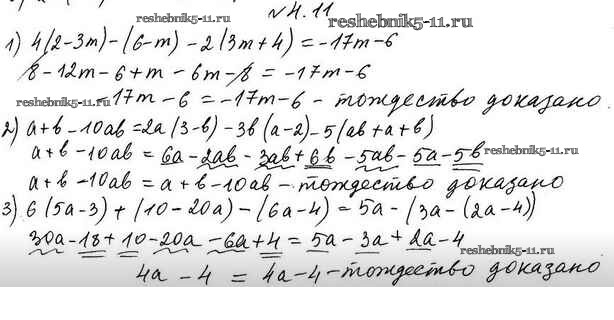 №4.11
reshebnik5-11.ru
reshebnik5-11.ru
1) 4(2-3m)-(6-m)-2(3m+4)=-17m-6
8-12m-6+m-6m-8=-17m-6
reshebnik5-11.ru
-17m-6=-17m-6- тождество доказано.
2) a+b-10ab=2a(3-b)-3b(a-2)-5(ab+a+b)
a+b-10ab=6a-2ab-3ab+6b-5ab-5a-5b
reshebnik5-11.ru
a+b-10ab=a+b-10ab- тождество доказано
3) 6(5a-3)+(10-20a)-(6a-4)=5a-(3a-(2a-4))
30a-18+10-20a-6a+4=5a-3a+2a-4
reshebnik5-11.ru
4a-4=4a-4- тождество доказано